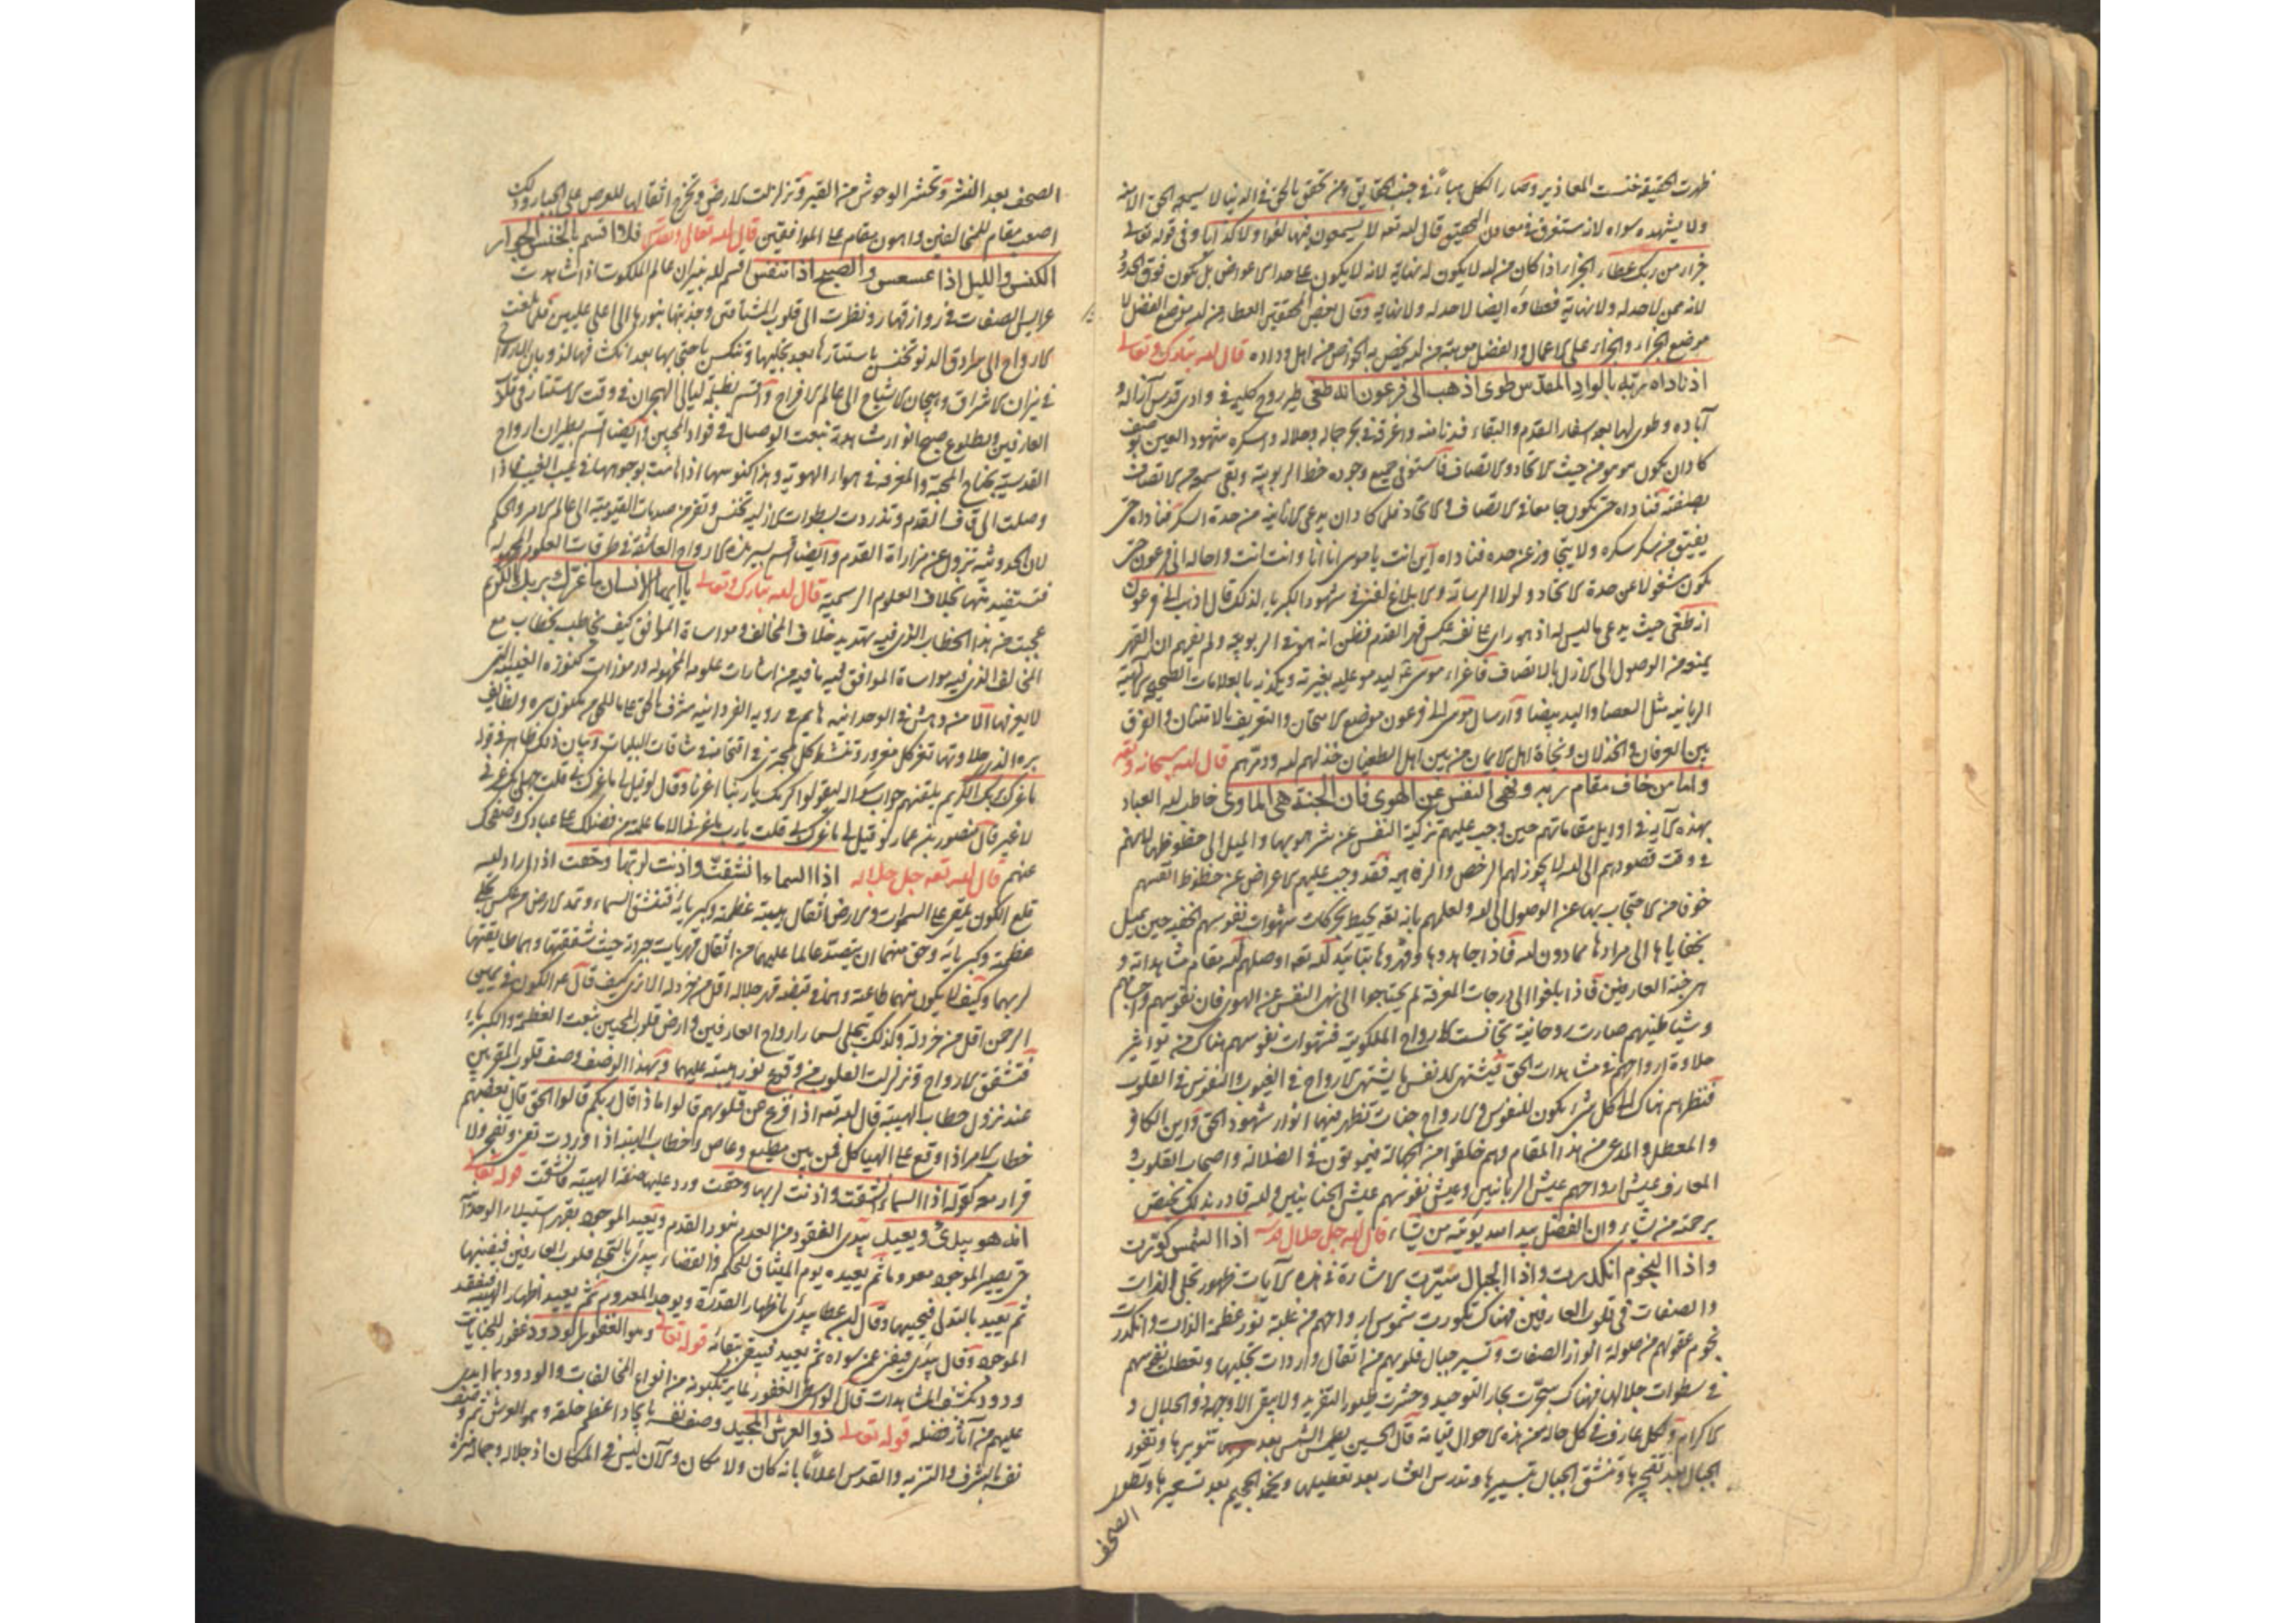 ظهرت الحقيقة خنست المعاذير وصار الكل هباء في جنب الحقايق ومن تحقق بالحق في الدنيا لا يسمع الحق الا منه
ولا يشهد سواه لانه مستغرق في معادن التحقيق قال الله تعه لا يسمعون فيها لغوا ولا كذابا وفي قوله تعالى
جزاء من ربك عطاء الجزاء اذا كان من الله لا يكون له نهاية لانه لا يكون على حد الاعواض بل يكون فوق الحدود
لانه ممن لا حد له ولا نهاية فعطاؤه ايضا لا حد له ولا نهاية وقال بعض المحققين العطاء من الله موضع الفضل لا
موضع الجزاء والجزاء على الاعمال والفضل موهبة من الله يخص به الخواص من اهل وداده قال الله تبارك وتعالى
اذ ناداه ربه بالواد المقدس طوى اذهب الى فرعون انه طغى طير روح كليمه في وادي قدس آزاله و
آباده وطوى لها بعد اسفار القدم والبقاء فدنا منه واغرقه في بحر جماله وجلاله واسكره شهود العين
كاد ان يكون هو هو من حيث الاتحاد والاتصاف فاستوفى جميع وجوده حظ الربوبية وبقي سمعه من الاتصاف
بصفته فناداه حتى يكون جامعا في الاتصاف والاتحاد فلما كاد ان يدعى الانانية من حدة السكر فناداه حتى
يفيق من سكر سكره ولا يتجاوز عن حده فناداه اين انت يا موسى انا انا وانت انت واحاله الى فرعون حتى
يكون مشغولا عن حدة الاتحاد ولولا الرسالة والابلاغ لفنى في شهود الكبرياء لذلك قال اذهب الى فرعون
انه طغى حيث يدعى ما ليس له اذ هو راى على نفسه عكس قهر القدم فظن انه هو في الربوبية ولم يفهم ان القهر
يمنعه من الوصول الى الازل بالاتصاف فاغراء موسى عليه بغيرته ويكذبه بالعلامات الصحيحة الالهية
الربانية مثل العصا واليد بيضا وارسال موسى الى فرعون موضع الامتحان والتعريف بالامتنان والفرق
بين العرفان والخذلان ونجاة اهل الايمان من بين اهل الطغيان خذلهم الله ودمرهم قال الله سبحانه وتعه
واما من خاف مقام ربه ونهى النفس عن الهوى فان الجنة هي الماوى خاطب الله العباد
بهذه الآية في اوايل مقاماتهم حين وجب عليهم تزكية النفس عن شر هوبها والميل الى حظوظها لانهم
في وقت قصودهم الى الله لا يجوز لهم الرخص والرفاهية فقد وجب عليهم الاعراض عن حظوظ انفسهم
خوفا من الاحتجاب بها عن الوصول الى الله ولعلهم بانه تعه يحيط بحركات شهوات نفوسهم الخفية حين يميل
بخفاياها الى مرادها مما دون الله فاذا جاهدوها وقهروها بتاييد الله تعه اوصلهم الله مقام مشاهداته و
هي جنة العارفين فاذا بلغوا الى درجات المعرفة لم يحتاجوا الى نهى النفس عن الهوى فان نفوسهم واجسامهم
وشياطينهم صارت روحانية تجانست الارواح الملكوتية فشهوات نفوسهم هناك من تواثير
حلاوة ارواحهم في مشاهدات الحق فيشتهى الانفس ما يشتهى الارواح في الغيوب والنفوس في القلوب
فنظرهم هناك الى كل شئ يكون للنفوس والارواح جنات تظهر فيها انوار شهود الحق واين الكافر
والمعطل والمدعى من هذا المقام وهم خلقوا من الجهالة فيموتون في الضلالة واصحاب القلوب و
المعارف عيش ارواحهم عيش الربانيين وعيش نفوسهم عيش الجنانيين والله قادر بذلك يختص
برحمته من يشاء وان الفضل بيد الله يؤتيه من يشاء قال الله جل جلال قدسه اذا الشمس كورت
واذا النجوم انكدرت واذا الجبال سيرت الاشارة في هذه الآيات ظهور تجلى الذات
والصفات في قلوب العارفين فهناك تكورت شموس ارواحهم من غلبة نور عظمة الذات وانكدرت
نجوم عقولهم من صولة انوار الصفات وتسير جبال قلوبهم من اثقال واردات تجليها وتعطلت نفوسهم
في سطوات جلالها فهناك سجرت بحار التوحيد وحشرت طيور التفريد ولا يبقى الا وجه ذو الجلال و
الاكرام ولكل عارف في كل حالة من هذه الاحوال قيامة قال الحسين يطمس الشمس بعد تنويرها وتغور
الجبال بعد تفجيرها وتنشق الجبال بتسييرها وتدرس العشار بعد تعطيلها ويخمد الجحيم بعد تسعيرها وتطوى
الصحف
الصحف بعد النشر وتحشر الوحوش من القبر وتزلزلت الارض وتخرج اثقالها للعرض على الجبار وذلك
اصعب مقام للمخالفين واهون مقام على الموافقين قال الله تعالى وتقدس فلا اقسم بالخنس الجوار
الكنس والليل اذا عسعس والصبح اذا تنفس اقسم الله بنيران عالم الملكوت اذا شاهدت
عرايس الصفات في رواز قهار ونظرت الى قلوب المشتاقين وجذبتها بنورها الى اعلى عليين فلما بلغت
الارواح الى سرادق الدنو تخنس باستتارها بعد تجليها وتنكس باحتجابها بعد انكشافها لذوبان الارواح
في نيران الاشراق وهيجان الاشباح الى عالم الافراح واقسم بظلمة ليالى الهجران في وقت الاستتار في قلوب
العارفين وبطلوع صبح انوار مشاهدة نعت الوصال في فواد المحبين وايضا اقسم بطيران ارواح
القدسية بجناح المحبة والمعرفة في هواء الهوية وهذا كنوسها اذا هامت بوجوهها في غيب الغيب فاذا
وصلت الى قاف القدم وتدردت بسطوات الازلية تخنس وتفر من صدمات القيومية الى عالم الامر والحكم
لان الحدوثية تزول عن مزاراة القدم وايضا اقسم بسير هذه الارواح العاشقة في طرقات العلوم المجهولة
فتستفيد منها بخلاف العلوم الرسمية قال الله تبارك وتعالى يا ايها الانسان ما غرك بربك الكريم
عجبت من هذا الخطاب الذي فيه تهديد خلاف المخالف ومواساة الموافق كيف يخاطب بخطاب مع
المخالف الذي فيه مواساة الموافق فيه ما فيه من اشارات علومه المجهولة ورموزات كنوزه الغيبية التي
لا يعرفها الا من دهش في الوحدانية هايم في روية الفردانية مشرف بالحق على ما للحق من مكنون سره ولطايف
بره الذي حلاوتها تغر كل مغرور وتنشط كل مجترى في اقتحامه في شاقات البليات وبيان ذلك ظاهر في قوله
ما غرك بربك الكريم يلقنهم جواب سؤاله ليقولوا كرمك يا ربنا اغرنا وقال لو قيل لى ما غرك بى قلت جهلى بك غرنى
لا غير قال منصور بن عمار لو قيل لى ما غرك بى قلت يا رب ما غرنى الا ما علمته من فضلك على عبادك وصفحك
عنهم قال الله تعه جل جلاله اذا السماء انشقت واذنت لربها وحقت اذا اراد الله
قلع الكون يلقى على السموات والارض اثقال هيبته عظمته وكبريائه فتنشق السماء وتمد الارض من عكس تجلى
عظمته وكبريائه وحق منهما ان يتصدعا لما عليهما من اثقال قهريات جبروته حيث شققتها وهما مطايقتها
لربهما وكيف لا يكون منهما طاعته وهما في قبضة قهر جلاله اقل من خردلة الا ترى كيف قال عم الكون في يمين
الرحمن اقل من خردلة وكذلك يتجلى لسماء ارواح العارفين وارض قلوب المحبين بنعت العظمة والكبرياء
فتشقق الارواح وتزلزلت القلوب من وقوع نور هيبته عليهما وبهذا الوصف وصف قلوب المقربين
عند نزول خطاب الهيبة قال الله تعه اذا فزع عن قلوبهم قالوا ماذا قال ربكم قالوا الحق قال بعضهم
خطاب الامر اذا وقع على الهياكل فمن بين مطيع وعاص وخطاب الهيبة اذا وردت تعز وتفجر ولا
قرار معه كقوله اذا السماء انشقت واذنت لربها وحقت ورد عليها صفة الهيبة فانشقت قوله تعالى
انه هو يبدئ ويعيد يبدئ المفقود من العدم بنور القدم ويعيد الموجود بقهر استيلاء الوحدانية
حتى يصير الموجود معدوما ثم يعيده يوم الميثاق للحكم والقضاء يبدئ بالتجلى قلوب العارفين فيفنيها
ثم يعيد بالتدلى فيحييها وقال ابن عطا يبدئ باظهار القدرة ويوجد المعدوم ثم يعيد اظهار الهيبة فيفقد
الموجود وقال يبدئ فيفنى عن سواه ثم يعيد فيبقى ببقائه قوله تعالى وهو الغفور الودود غفور للجنايات
ودود بكشف المشاهدات قال الواسطى الغفور لما يرتكبونه من انواع المخالفات والودود بما ابدى
عليهم من آثار فضله قوله تعالى ذو العرش المجيد وصف نفسه بايجاد اعظم خلقه وهو العرش ثم وصف
نفسه بالشرف والتنزيه والقدس اعلانا بانه كان ولا مكان والآن ليس في المكان اذ جلاله وجماله منزه